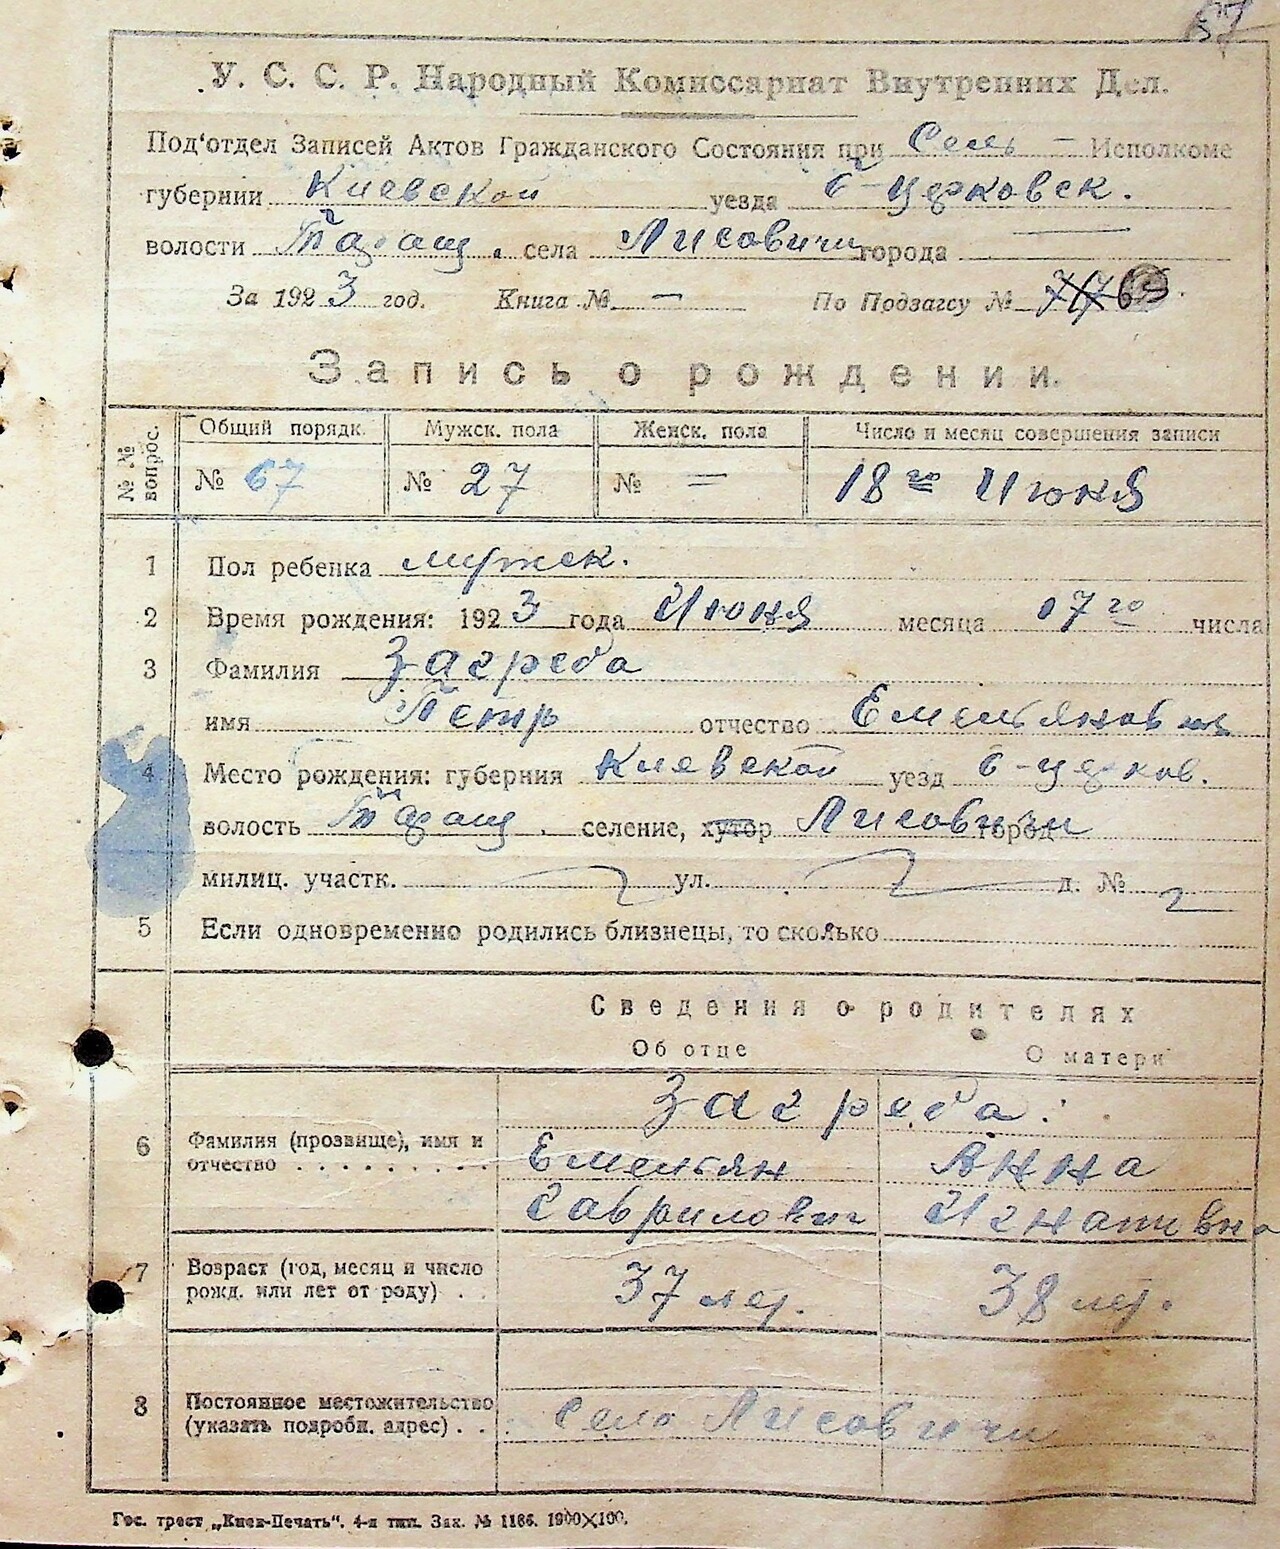 67
У. С. С. Р. Народный Комиссариат Внутренних Дел.
Под'отдел Записей Актов Гражданского Состояния при Сель — Исполкоме
губернии Киевской уезда б-церковск.
волости Таращ. села Лисовичи города —
За 1923 год. Книга № — По Подзагсу №
Запись о рождении.
№ № вопрос. Общий порядк. Мужск. пола Женск. пола Число и месяц совершения записи
№ 67 № 27 № = 18го Июня
1 Пол ребенка мужск.
2 Время рождения: 1923 года Июня месяца 17го числа
3 Фамилия Загреба
имя Петр отчество Емельянович
4 Место рождения: губерния Киевской уезд б-церков.
волость Таращ. селение, хутор Лисовичи город
милиц. участк. ул. д. №
5 Если одновременно родились близнецы, то сколько
Сведения о родителях
Об отце О матери
Загреба.
6 Фамилия (прозвище), имя и Емельян Анна
отчество . . . . . . . . . Гаврилович Игнатовна
7 Возраст (год, месяц и число 37 лет. 38 лет.
рожд. или лет от роду) . .
8 Постоянное местожительство село Лисовичи
(указать подробн. адрес) . . .
Гос. трест „Киев-Печать". 4-я тип. Зак. № 1166. 1900×100.